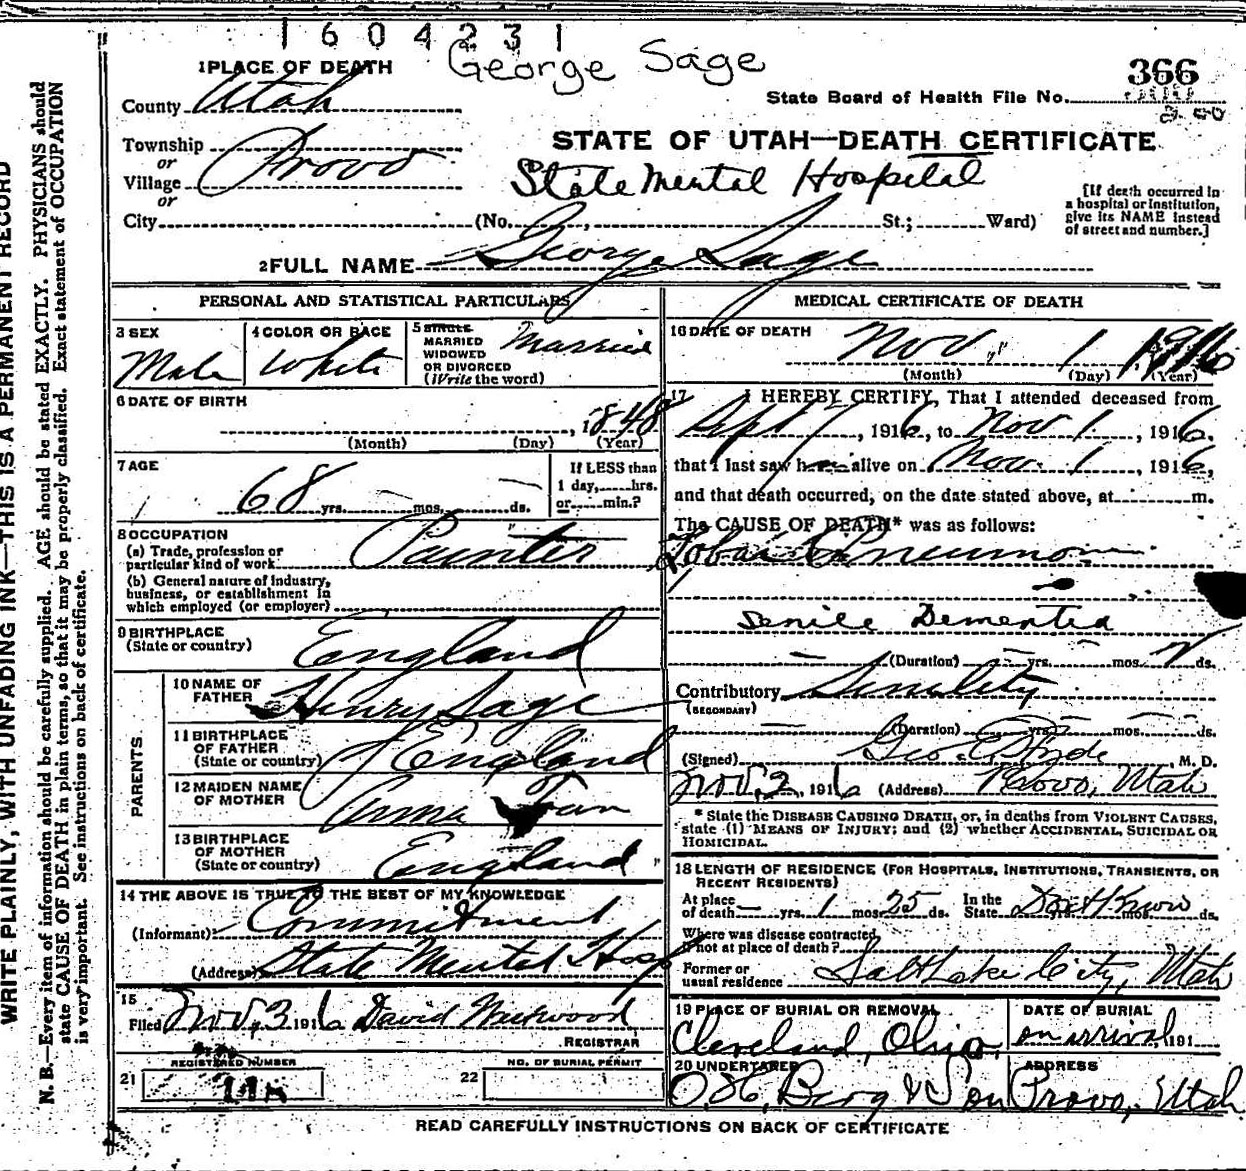 1604231
George Sage
1 PLACE OF DEATH
366
County Utah
State Board of Health File No.
STATE OF UTAH—DEATH CERTIFICATE
Township
or
Village Provo
or
State Mental Hospital
[If death occurred in
a hospital or institution,
give its NAME instead
of street and number.]
City (No. St.; Ward)
2 FULL NAME George Sage
PERSONAL AND STATISTICAL PARTICULARS
3 SEX
Male
4 COLOR OR RACE
White
5 SINGLE
MARRIED
WIDOWED
OR DIVORCED
(Write the word)
Married
6 DATE OF BIRTH
, 1848
(Month) (Day) (Year)
7 AGE
68 yrs. mos. ds.
If LESS than
1 day, hrs.
or min.?
8 OCCUPATION
(a) Trade, profession or
particular kind of work Painter
(b) General nature of industry,
business, or establishment in
which employed (or employer)
9 BIRTHPLACE
(State or country) England
PARENTS
10 NAME OF
FATHER Henry Sage
11 BIRTHPLACE
OF FATHER
(State or country) England
12 MAIDEN NAME
OF MOTHER
13 BIRTHPLACE
OF MOTHER
(State or country) England
14 THE ABOVE IS TRUE TO THE BEST OF MY KNOWLEDGE
(Informant) Commitment
(Address) State Mental Hosp
15
Filed Nov. 3 1916 David
REGISTRAR
REGISTERED NUMBER
21
NO. OF BURIAL PERMIT
22
MEDICAL CERTIFICATE OF DEATH
16 DATE OF DEATH
Nov 1 1916
(Month) (Day) (Year)
17 I HEREBY CERTIFY, That I attended deceased from
Sept 7, 1916, to Nov 1, 1916.
that I last saw him alive on Nov. 1, 1916,
and that death occurred, on the date stated above, at m.
The CAUSE OF DEATH* was as follows:
Lobar Pneumonia
Senile Dementia
(Duration) yrs. mos. ds.
Contributory Senility
(SECONDARY)
(Duration) yrs. mos. ds.
(Signed) Geo. E. Hyde, M. D.
Nov. 2, 1916 (Address) Provo, Utah
* State the DISEASE CAUSING DEATH, or, in deaths from VIOLENT CAUSES,
state (1) MEANS OF INJURY; and (2) whether ACCIDENTAL, SUICIDAL OR
HOMICIDAL.
18 LENGTH OF RESIDENCE (FOR HOSPITALS, INSTITUTIONS, TRANSIENTS, OR
RECENT RESIDENTS)
At place
of death yrs. 1 mos. 25 ds. In the
State Don't Know
Where was disease contracted,
if not at place of death?
Former or
usual residence Salt Lake City, Utah
19 PLACE OF BURIAL OR REMOVAL
Cleveland, Ohio,
DATE OF BURIAL
on arrival, 191
20 UNDERTAKER
O. H. Berg & Son
ADDRESS
Provo, Utah
READ CAREFULLY INSTRUCTIONS ON BACK OF CERTIFICATE
WRITE PLAINLY, WITH UNFADING INK—THIS IS A PERMANENT RECORD
N. B.—Every item of information should be carefully supplied. AGE should be stated EXACTLY. PHYSICIANS should
state CAUSE OF DEATH in plain terms, so that it may be properly classified. Exact statement of OCCUPATION
is very important. See instructions on back of certificate.